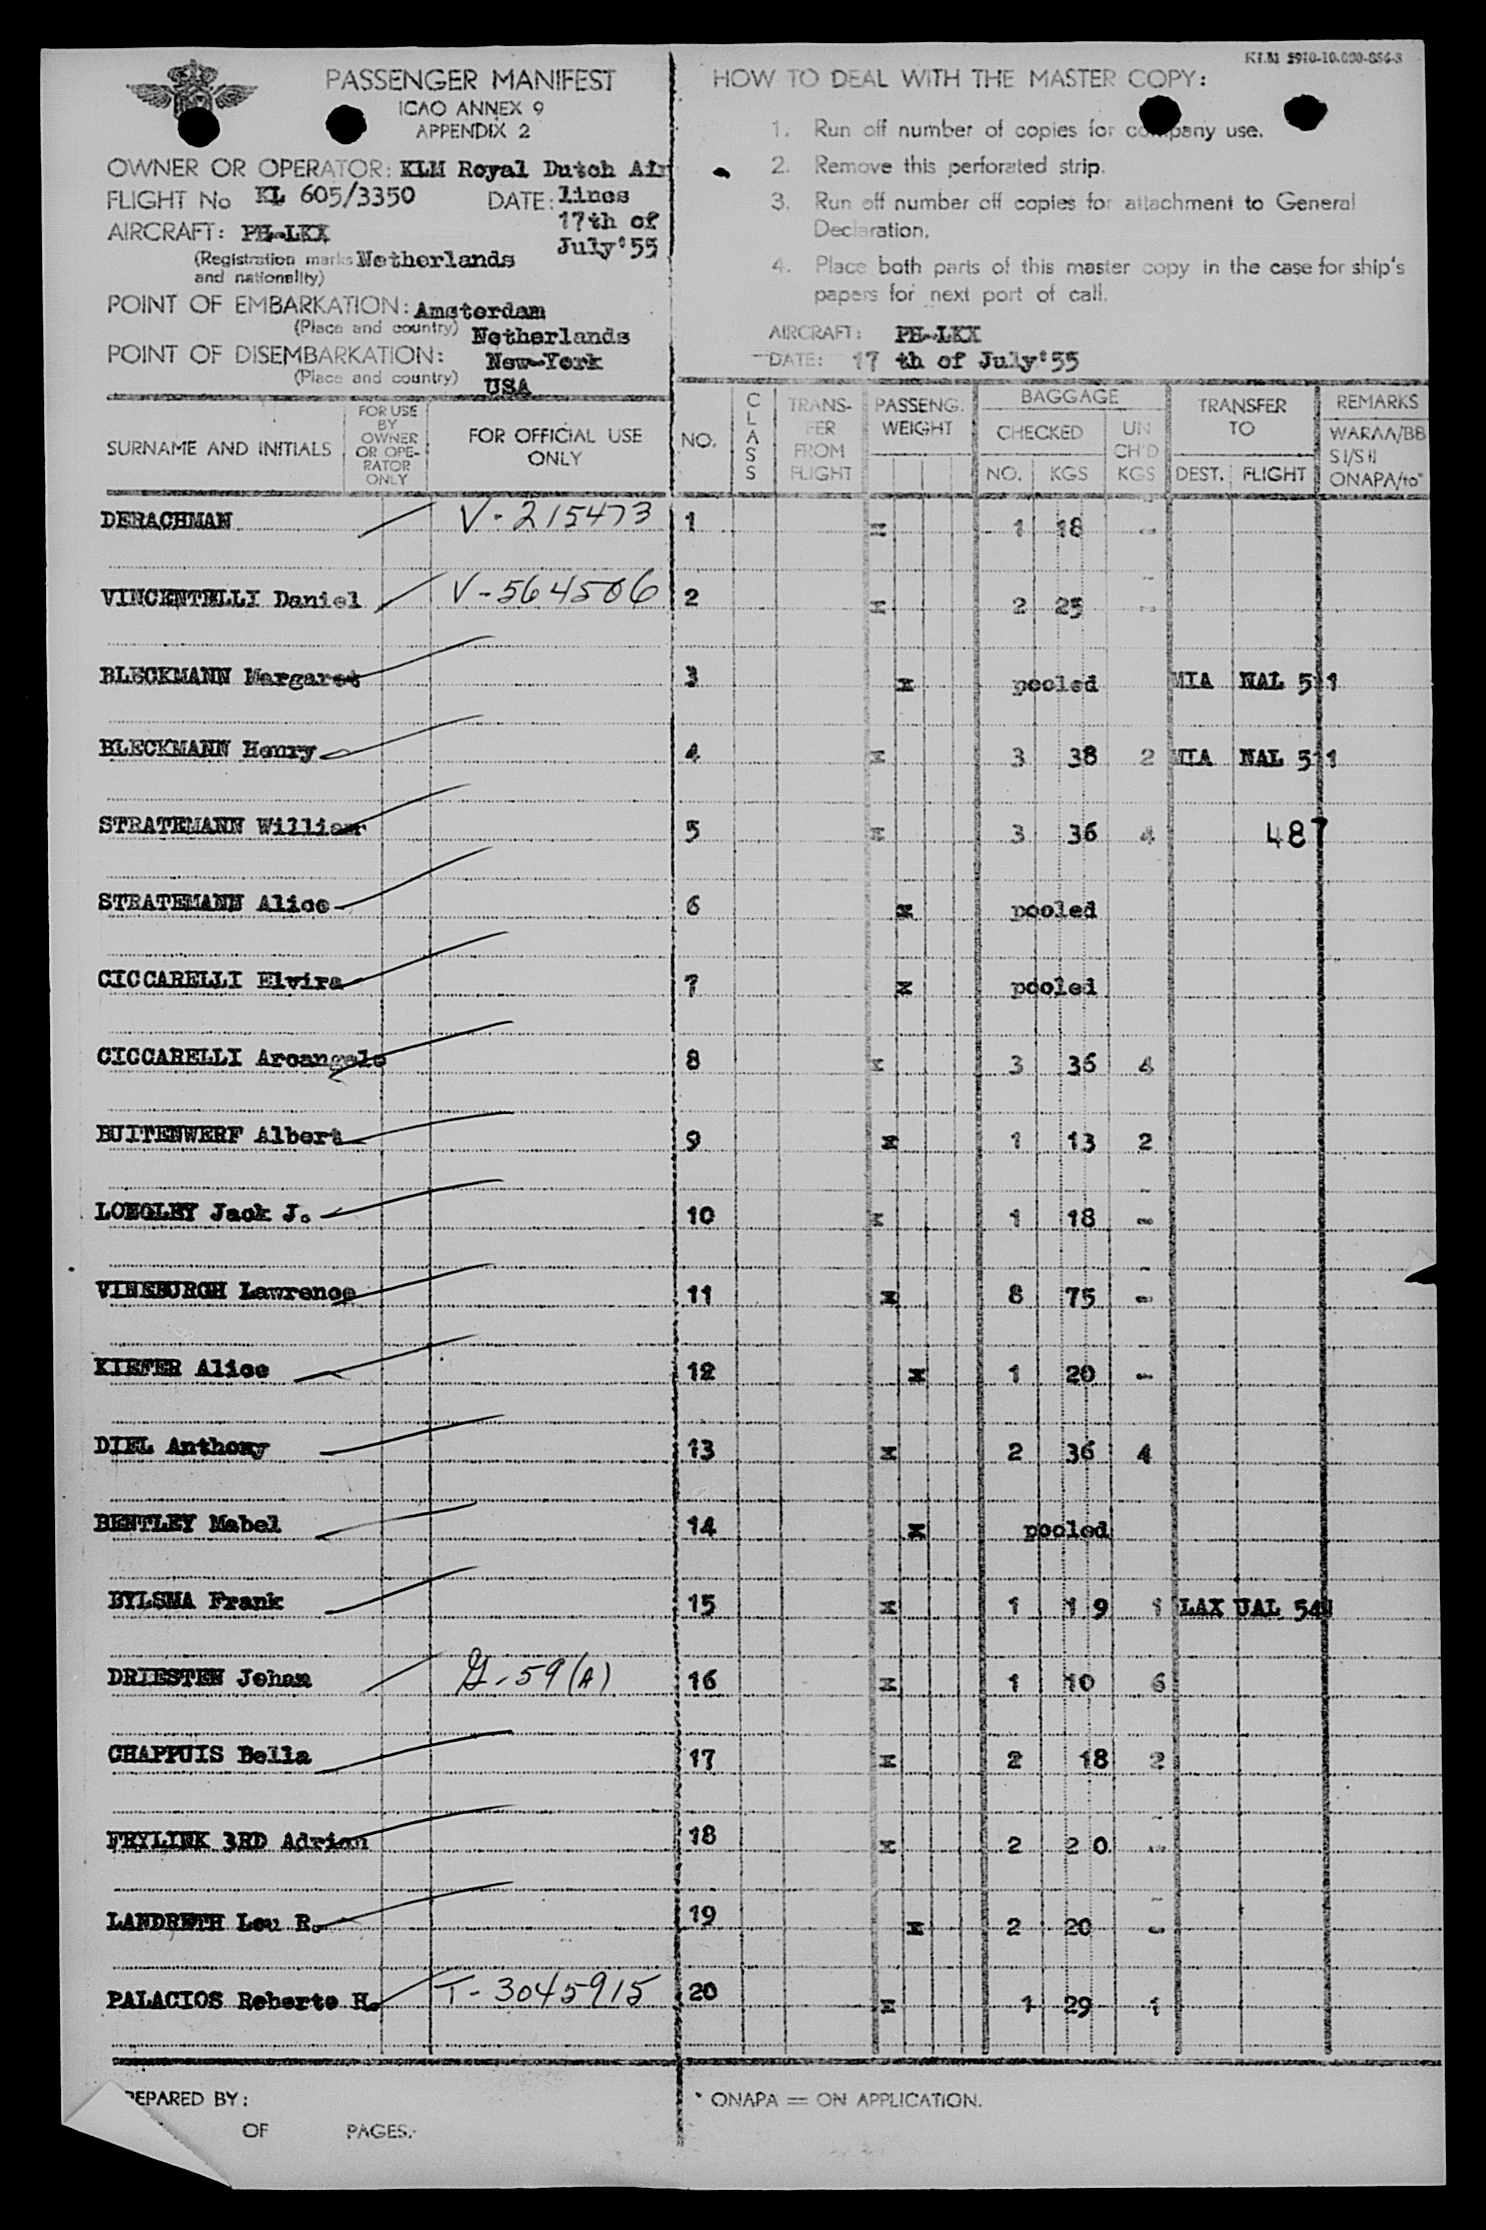 KLM 5910-10.000-856-3
PASSENGER MANIFEST
ICAO ANNEX 9
APPENDIX 2
OWNER OR OPERATOR: KLM Royal Dutch Air
lines
FLIGHT No KL 605/3350 DATE: 17th of
July'55
AIRCRAFT: PH-LKX
(Registration marks Netherlands
and nationality)
POINT OF EMBARKATION: Amsterdam
(Place and country) Netherlands
POINT OF DISEMBARKATION: New-York
(Place and country) USA
HOW TO DEAL WITH THE MASTER COPY:
1. Run off number of copies for company use.
2. Remove this perforated strip.
3. Run off number off copies for attachment to General
Declaration.
4. Place both parts of this master copy in the case for ship's
papers for next port of call.
AIRCRAFT: PH-LKX
DATE: 17 th of July'55
SURNAME AND INITIALS FOR USE BY OWNER OR OPE- RATOR ONLY FOR OFFICIAL USE ONLY NO. CLASS TRANS- FER FROM FLIGHT PASSENG. WEIGHT BAGGAGE CHECKED NO. KGS UN CH'D KGS TRANSFER TO DEST. FLIGHT REMARKS WARAA/BB SI/SII ONAPA/to*
DERACHMAN V-215473 1 x 1 18 -
VINCENTELLI Daniel V-564506 2 x 2 25 -
BLECKMANN Margaret 3 x pooled MIA NAL 511
BLECKMANN Henry 4 x 3 38 2 MIA NAL 511
STRATEMANN William 5 x 3 36 4 487
STRATEMANN Alice 6 x pooled
CICCARELLI Elvira 7 x pooled
CICCARELLI Arcangelo 8 x 3 36 4
BUITENWERF Albert 9 x 1 13 2
LONGLEY Jack J. 10 x 1 18 -
VINEBURGH Lawrence 11 x 8 75 -
KIEFER Alice 12 x 1 20 -
DIEL Anthony 13 x 2 36 4
BENTLEY Mabel 14 x pooled
BYLSMA Frank 15 x 1 19 1 LAX UAL
DRIESTEN Johan G-59(A) 16 x 1 10 6
CHAPPUIS Bella 17 x 2 18 2
FRYLINK 3RD Adrian 18 x 2 20 -
LANDRETH Lou R. 19 x 2 20 -
PALACIOS Roberto H. T-3045915 20 x 1 29 1
REPARED BY:
OF PAGES.
* ONAPA = ON APPLICATION.